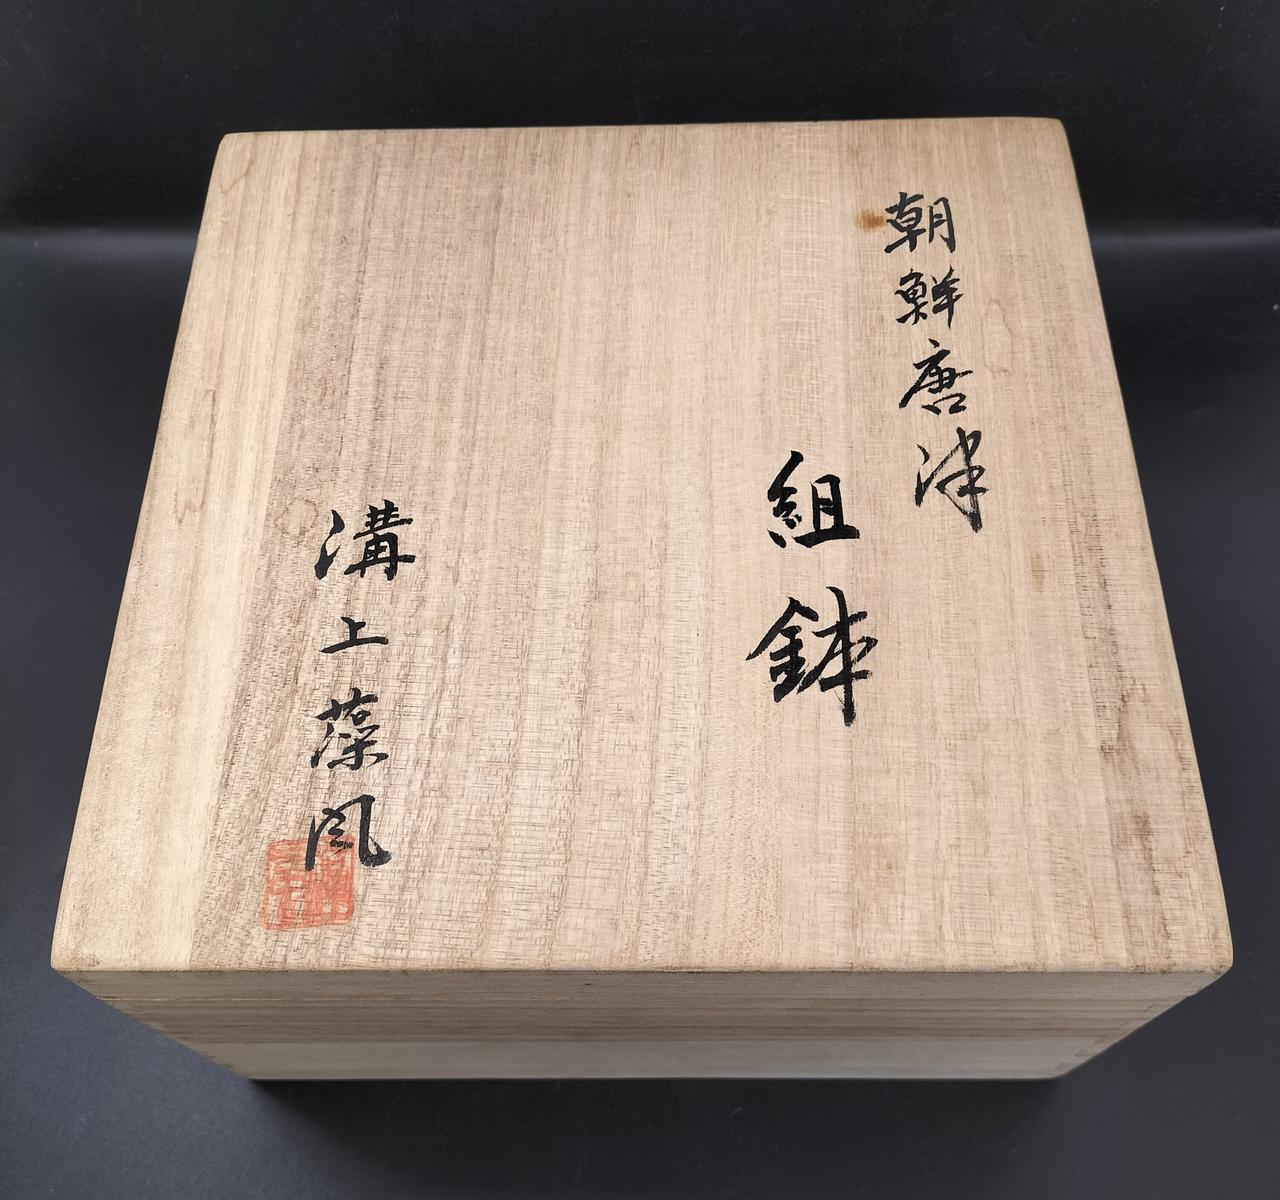 朝鮮唐津
組鉢
溝上藻風